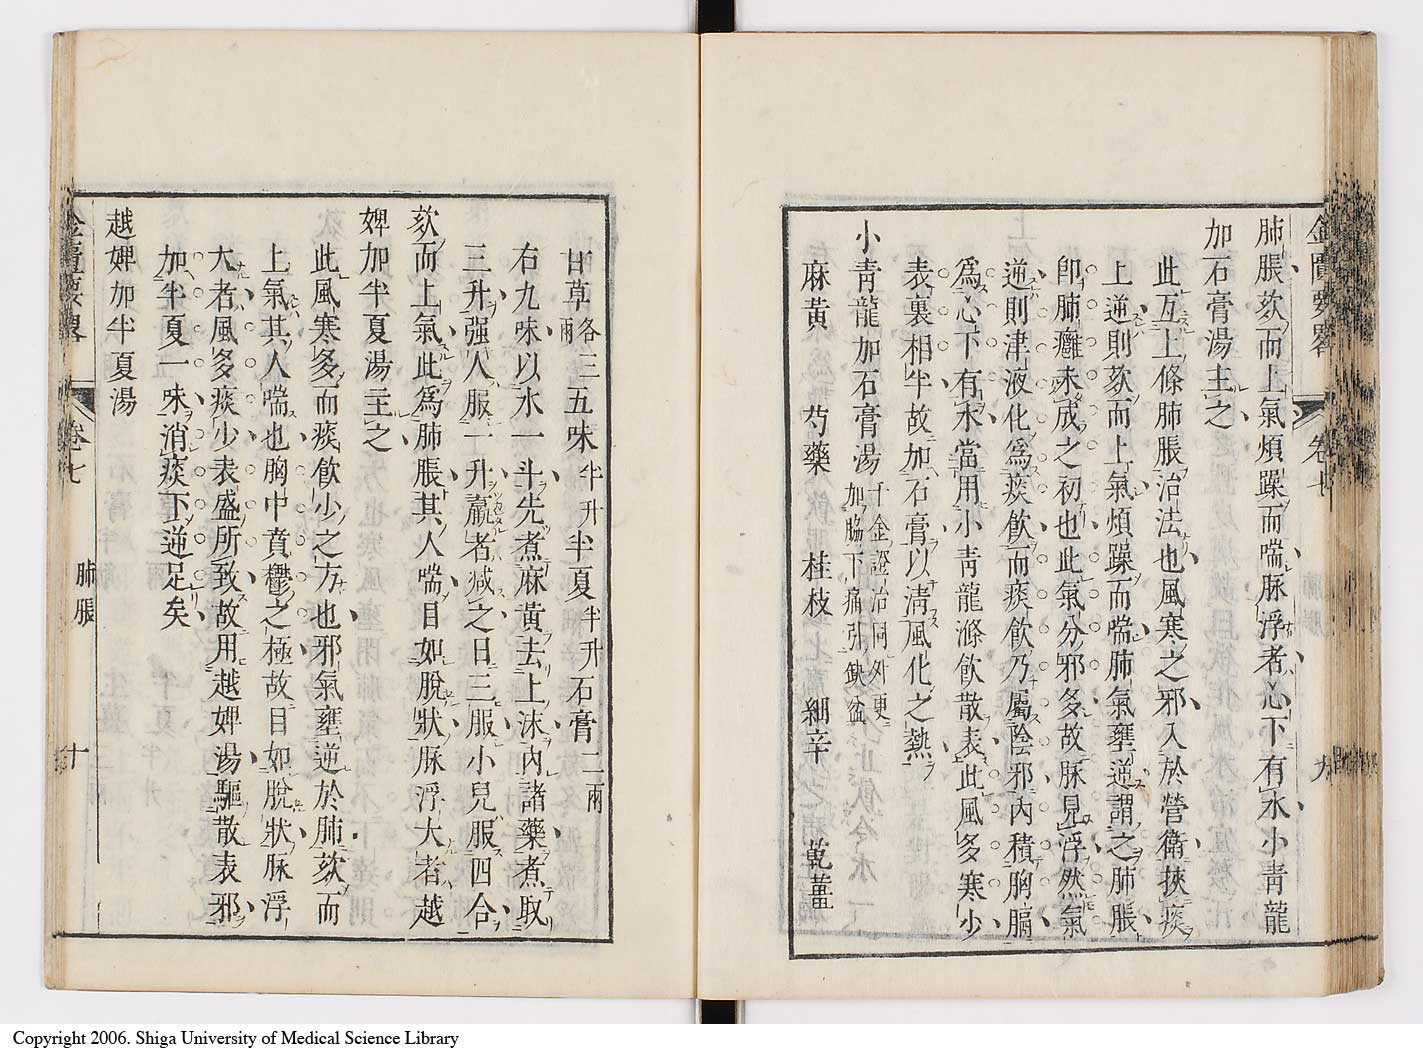 金匱要略 卷七 九
肺脹欬而上氣煩躁而喘脉浮者心下有水小青龍
加石膏湯主之
此互上條肺脹治法也風寒之邪入於營衛挾痰
上逆則欬而上氣煩躁而喘肺氣壅逆謂之肺脹
卽肺癰未成之初也此氣分邪多故脉見浮然氣
逆則津液化爲痰飲而痰飲乃屬陰邪內積胸膈
爲心下有水當用小青龍滌飲散表此風多寒少
表裏相半故加石膏以淸風化之熱
小青龍加石膏湯 千金證治同外更
加脇下痛引缺盆
麻黃 芍藥 桂枝 細辛 乾薑
甘草 各三兩 五味 半升 半夏 半升 石膏 二兩
右九味以水一斗先煮麻黃去上沫內諸藥煮取
三升強人服一升羸者減之日三服小兒服四合
欬而上氣此爲肺脹其人喘目如脫狀脉浮大者越
婢加半夏湯主之
此風寒多而痰飲少之方也邪氣壅逆於肺欬而
上氣其人喘也胸中賁鬱之極故目如脫狀脉浮
大者風多痰少表盛所致故用越婢湯驅散表邪
加半夏一味消痰下逆足矣
越婢加半夏湯
金匱要畧 卷七 肺脹 十
Copyright 2006. Shiga University of Medical Science Library